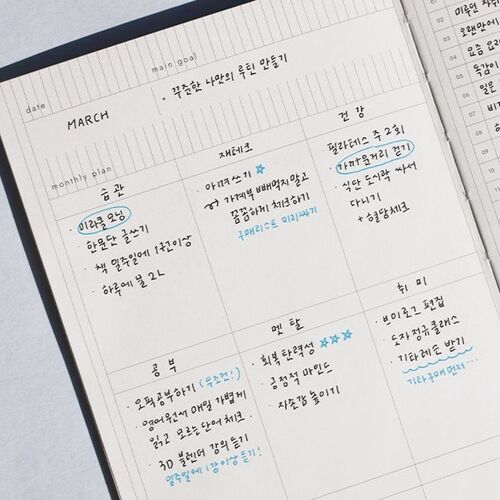 date
MARCH
main goal
· 꾸준한 나만의 루틴 만들기
monthly plan
습관
· 미라클 모닝
· 한문단 글쓰기
· 책 일주일에 1권이상
· 하루에 물 2L
재테크
· 아껴쓰기 ☆
→ 가계부 빼먹지말고
꼼꼼하게 체크하기
구매리스트 미리짜기
건강
· 필라테스 주 2회
· 가까운거리 걷기
· 식단 도시락 싸서
다니기
+ 혈당체크
공부
· 오픽공부하기 (무조건!)
· 영어원서 매일 가볍게
읽고 모르는단어 체크
· 3D 블렌더 강의 듣기
일주일에 1강이상 듣기!
멘탈
· 회복탄력성 ☆☆☆
· 긍정적 마인드
· 자존감 높이기
취미
· 브이로그 편집
· 도자정규클래스
· 기타레슨 받기
기타구매먼저...
01
02
03
04
05
06
07
08
09
10
미루던
오랜만에
요즘
독감이
일은